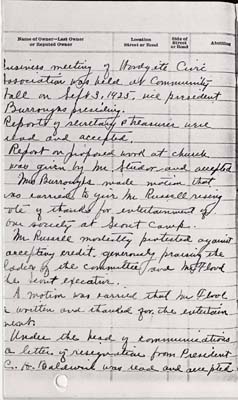 Name of Owner—Last Owner or Reputed Owner
Location Street or Road
Side of Street or Road
Abutting
Business meeting of Woodgate Civic
Association was held at Community
Hall on Sept 3, 1925, vice president
Burroughs presiding.
Reports of secretary & treasurer were
read and accepted.
Report on proposed work at church
was given by Mr. Studor and accepted
Mrs Burroughs made motion that
was carried to give Mr. Russell rising
vote of thanks for entertainment of
our society at Scout Camp.
Mr. Russell modestly protested against
accepting credit, generously praising the
ladies of the committee, and Mr Flood
the scout executive.
A motion was carried that Mr Flood
be written and thanked for the entertain
ment.
Under the head of communications
a letter of resignation from President
C. H. Baldwin was read and accepted